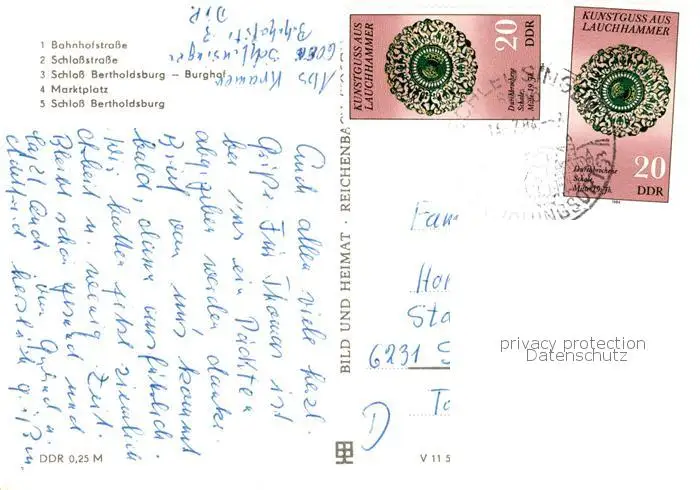 1 Bahnhofstraße
2 Schloßstraße
3 Schloß Bertholdsburg – Burghof
4 Marktplatz
5 Schloß Bertholdsburg
Abs Kramer
Schleusingen
Bahnhofstr. 3
DDR
Euch allen viele herzl.
Grüße. Für Thomas ist
bei uns ein Päckchen
abgegeben worden, danke.
Brief von uns kommt
bald, dann ausführlich.
Wir haben jetzt ziemlich
Arbeit u. wenig Zeit.
Bleibt schön gesund und
laßt Euch
herzlich
DDR 0,25 M
BILD UND HEIMAT · REICHENBACH
V 11 5
KUNSTGUSS AUS
LAUCHHAMMER
20
DDR
Durchbrochene
Schale,
Mitte 19. Jh.
KUNSTGUSS AUS
LAUCHHAMMER
Durchbrochene
Schale,
Mitte 19. Jh.
20
DDR
1984
Fam
Sta
6231 S
D
privacy protection
Datenschutz